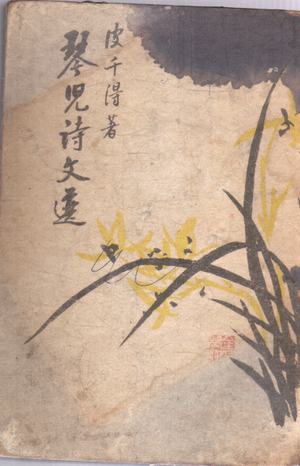 皮千得著
琴児詩文選